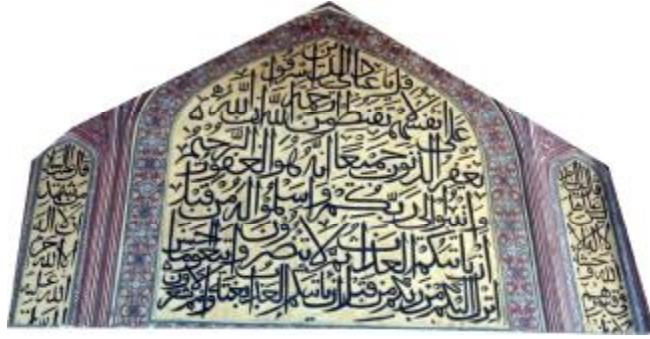 قل يا عبادي الذين اسرفوا
على انفسهم لا تقنطوا من رحمة الله ان الله
يغفر الذنوب جميعا انه هو الغفور الرحيم
وانيبوا الى ربكم واسلموا له من قبل
ان ياتيكم العذاب ثم لا تنصرون واتبعوا احسن ما
انزل اليكم من ربكم من قبل ان ياتيكم العذاب بغتة وانتم لا تشعرون
ان لا اله
الا الله
الله عليه